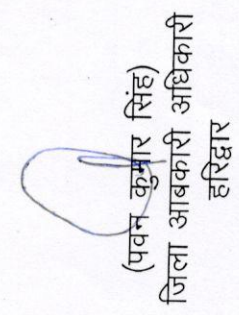 (पवन कुमार सिंह)
जिला आबकारी अधिकारी
हरिद्वार